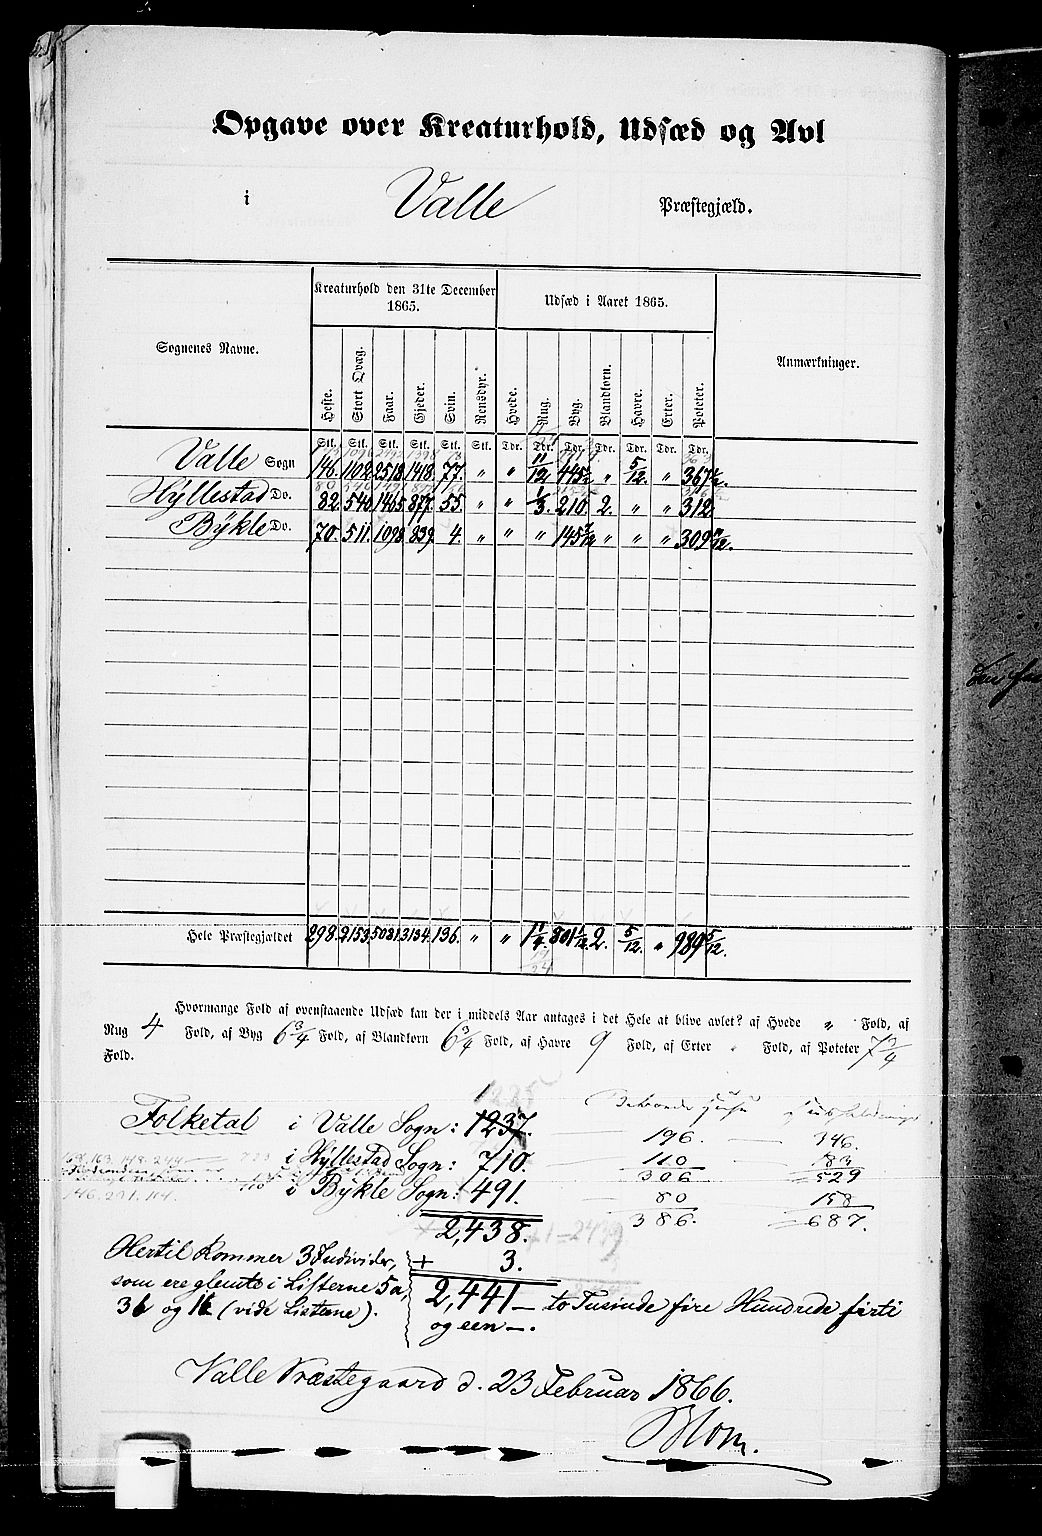 Opgave over Kreaturhold, Udsæd og Avl
i Valle Præstegjæld.
Sognenes Navne. Kreaturhold den 31te December 1865. Udsæd i Aaret 1865. Anmærkninger.
Heste. Stort Qvæg. Faar. Gjeder. Svin. Rensdyr. Hvede. Rug. Byg. Blandkorn. Havre. Erter. Poteter.
Stk. Stk. Stk. Stk. Stk. Stk. Tdr. Tdr. Tdr. Tdr. Tdr. Tdr. Tdr.
Valle Sogn 146. 1102. 2518. 1418. 77. " " 11/12 445 " 5/12. " 367½.
Hyllestad Do. 82. 540. 1465. 877. 55. " " 1/3. 210. 2. " " 312
Bykle Do. 70. 511. 1098. 839. 4. " " " 145 7/12 " " " 309 11/12.
Hele Præstegjældet 298. 2153. 5081. 3134. 136. " " 1¼. 801 1/12. 2. 5/12. " 989 5/12.
Hvormange Fold af ovenstaaende Udsæd kan der i middels Aar antages i det Hele at blive avlet? af Hvede " Fold, af
Rug 4 Fold, af Byg 6¾ Fold, af Blandkorn 6¾ Fold, af Havre 9 Fold, af Erter . Fold, af Poteter 7¾
Fold.
Folketal i Valle Sogn: 1237. 196. 346.
i Hyllestad Sogn: 710. 110 183
306 529
i Bykle Sogn: 491. 80 158
2,438. 386. 687.
Hertil kommer 3 Individer, + 3.
som ere glemte i Listerne 5a, 2,441 — to Tusinde fire Hundrede firti
3b og 1b (vide Listerne). og een —.
Valle Præstegaard d. 23 Februar 1866.
Blom.